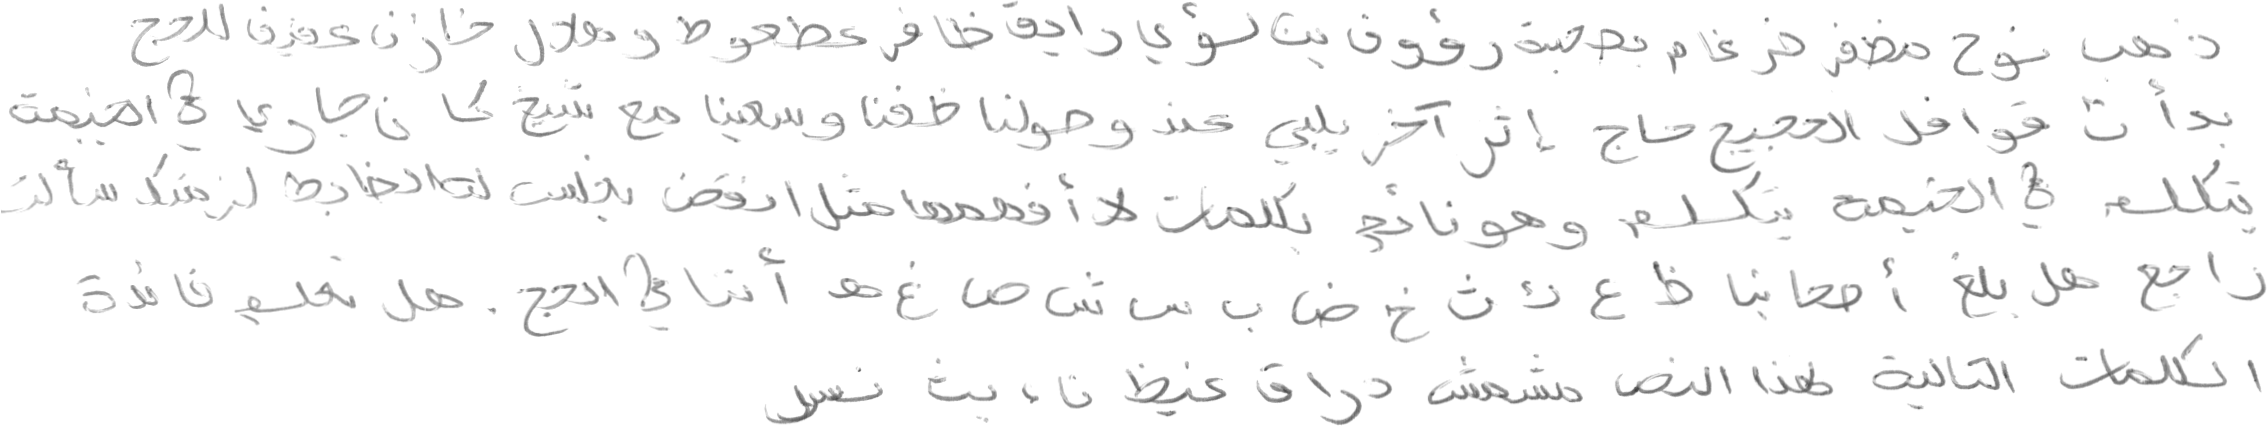 ذهب نوح مظفر ضرغام بصحبة رؤوف بن لؤي رايق ظافر عطعوط وهلال خازن عفيف للحج
بدأت قوافل الحجيج حاج إثر آخر يلبي عند وصولنا طفنا وسعينا مع شيخ كان جاري في الخيمة
يتكلم في الخيمة يتكلم وهو نائم بكلمات لا أفهمها مثل انقض بجلست لظا الضابط لزمتك سألت
راجع هل بلغ أصحابنا ظ ع ك ث خ ض ب س ش ص غ هـ أننا في الحج. هل تعلم فائدة
الكلمات التالية لهذا النص مشمش دراق غيظ ناء بث نسر